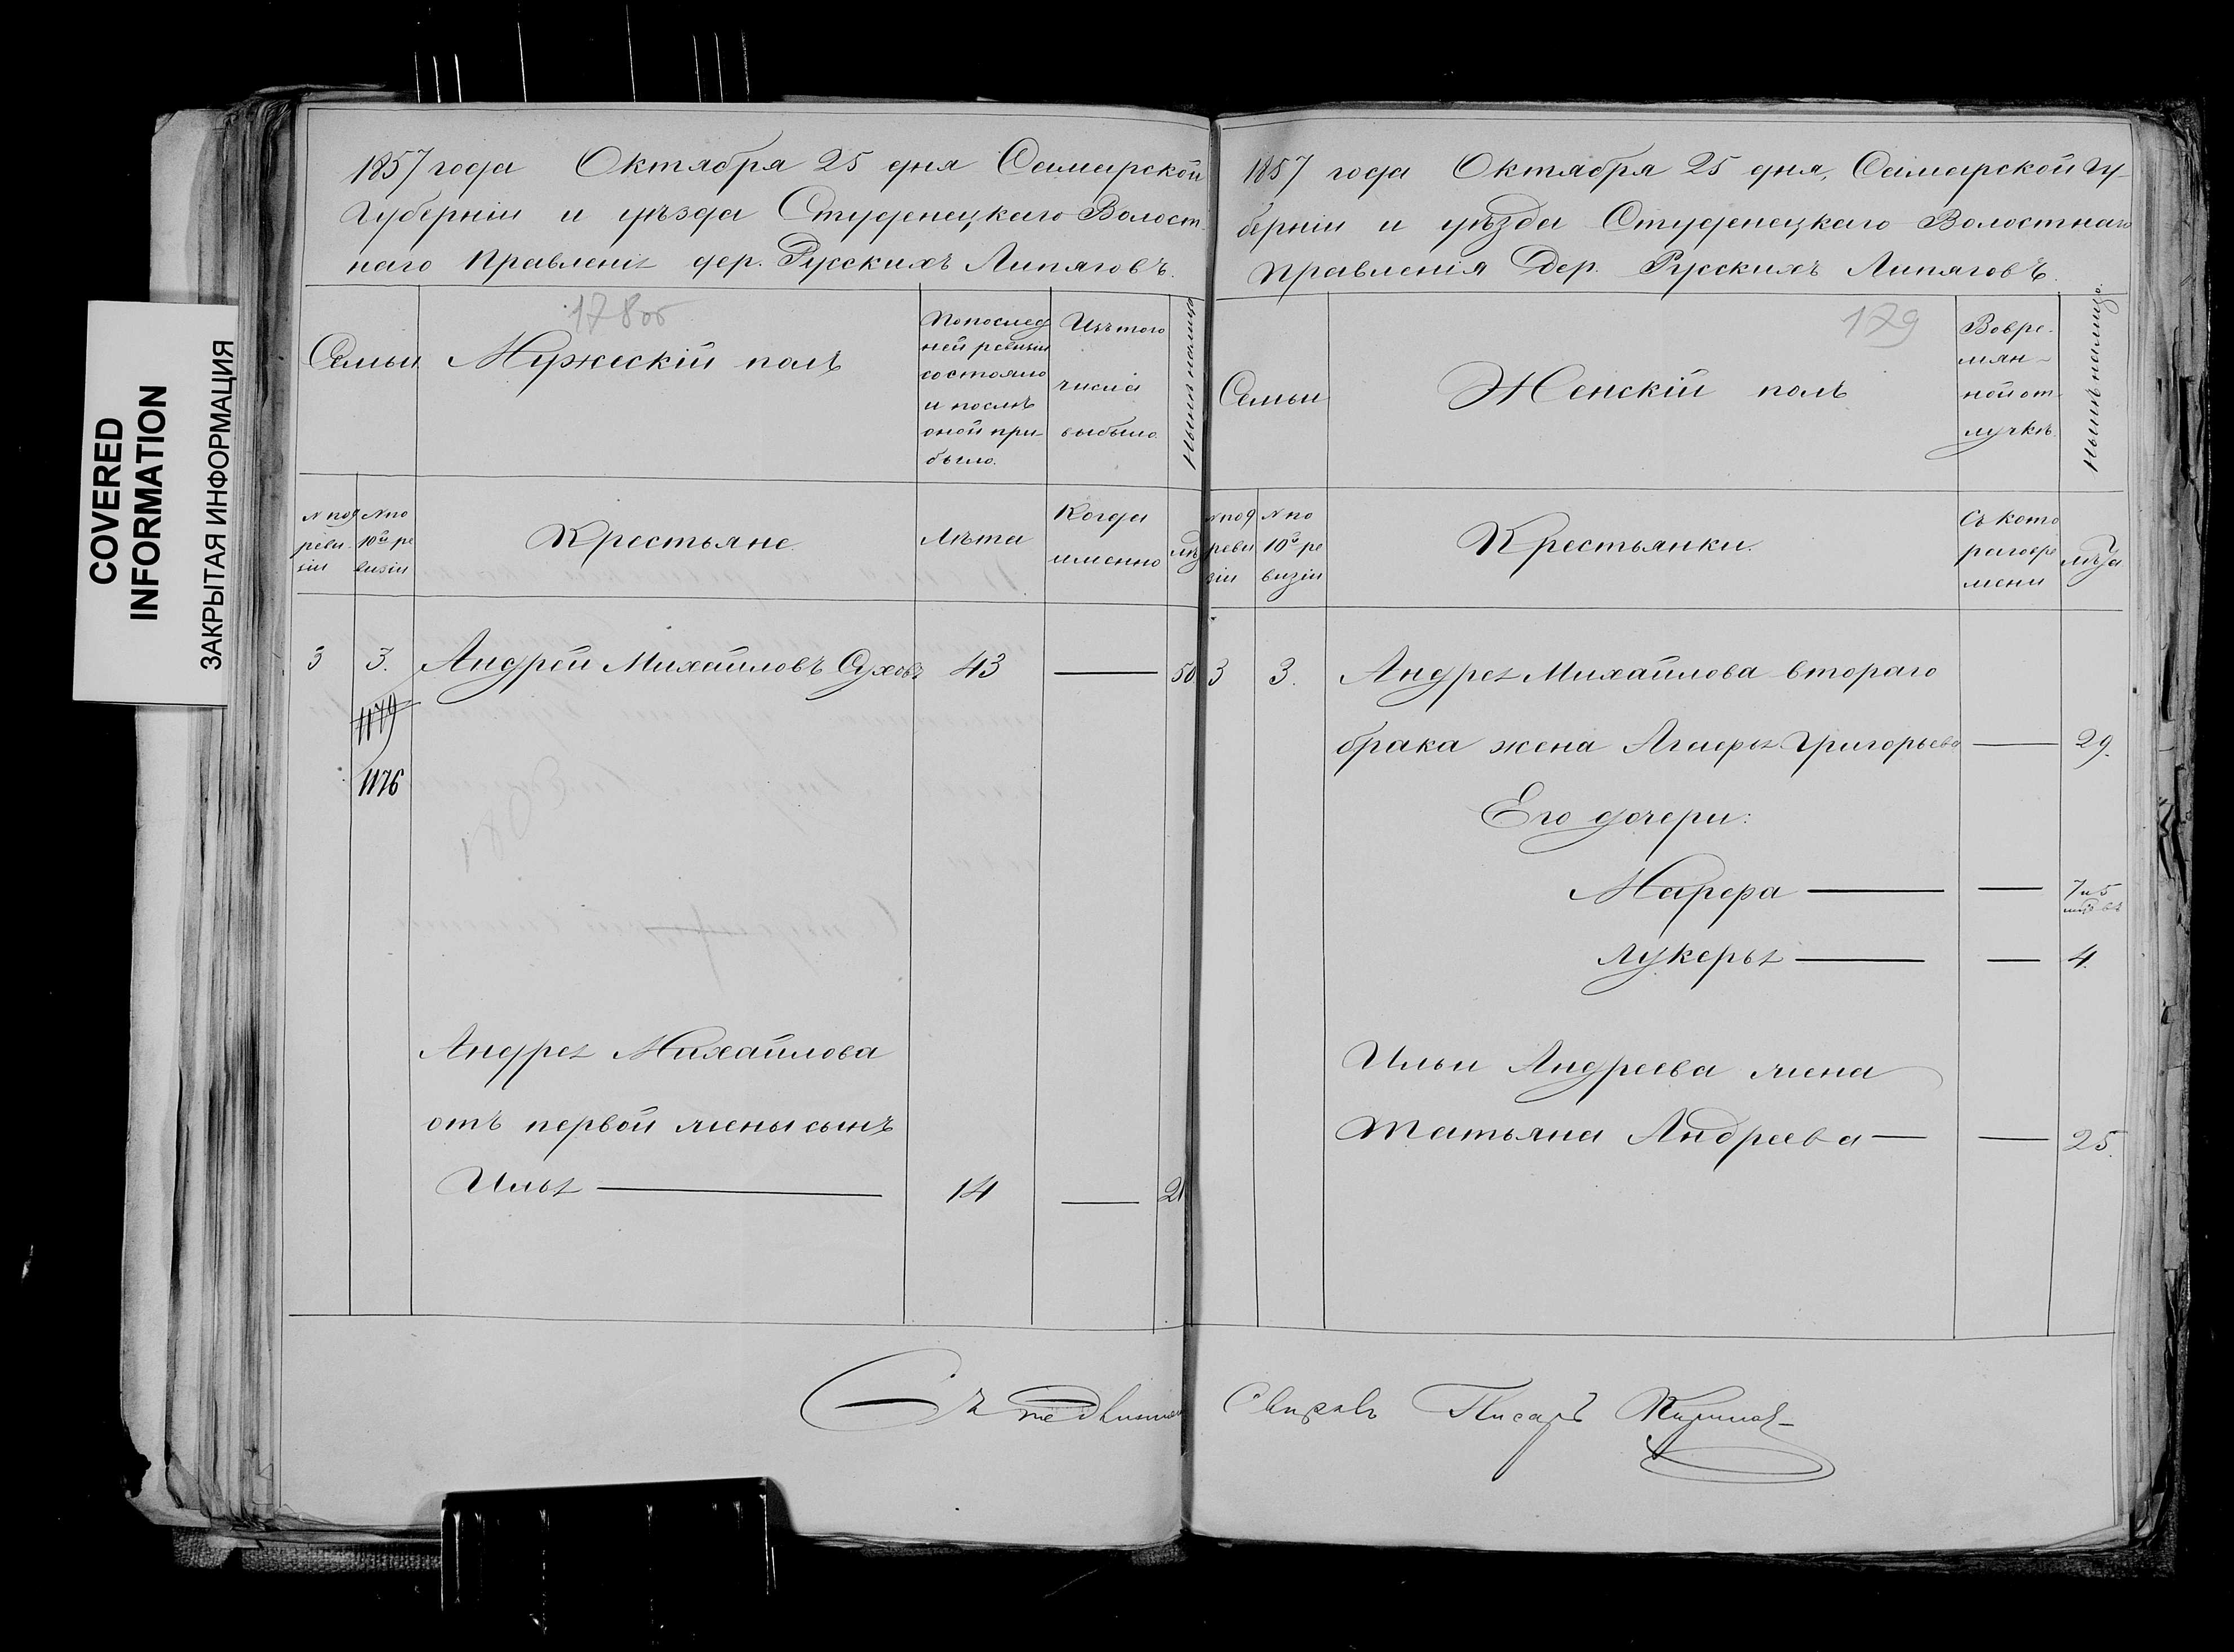 COVERED
INFORMATION
ЗАКРЫТАЯ ИНФОРМАЦИЯ
1857 года Октября 25 дня Самарской
Губерніи и уѣзда Студенецкаго Волост-
наго Правленія дер. Русскихъ Липяговъ.
178об
Семьи
Мужескій полъ
Попослед
ней ревизіи
состояло
и послѣ
оной при-
было.
Изъ того
числа
выбыло.
Нынѣ налицо
N по 9
реви-
зіи
N по
10й ре
визіи
Крестьяне.
Лѣта
Когда
именно
3 3. Андрей Михайловъ Суховъ 43 — 50
1179
1176
Андрея Михайлова
отъ первой жены сынъ
Илья — 14 — 21
1857 года Октября 25 дня, Самарской Гу-
берніи и уѣзда Студенецкаго Волостнаго
Правленія Дер. Русскихъ Липяговъ.
179
Семьи
Женскій полъ
Вовре-
мян-
ной от-
лучкѣ.
Нынѣ налицо.
N по 9
реви
зіи
N по
10й ре
визіи
Крестьянки.
Съ кото
раговре
мени
лѣта
3 3. Андрея Михайлова втораго
брака жена Агафья Григорьева — 29.
Его дочери:
Марфа — — 7 и 5
Лукерья — — 4.
Ильи Андреева жена
Татьяна Андреева — — 25.
Писарь